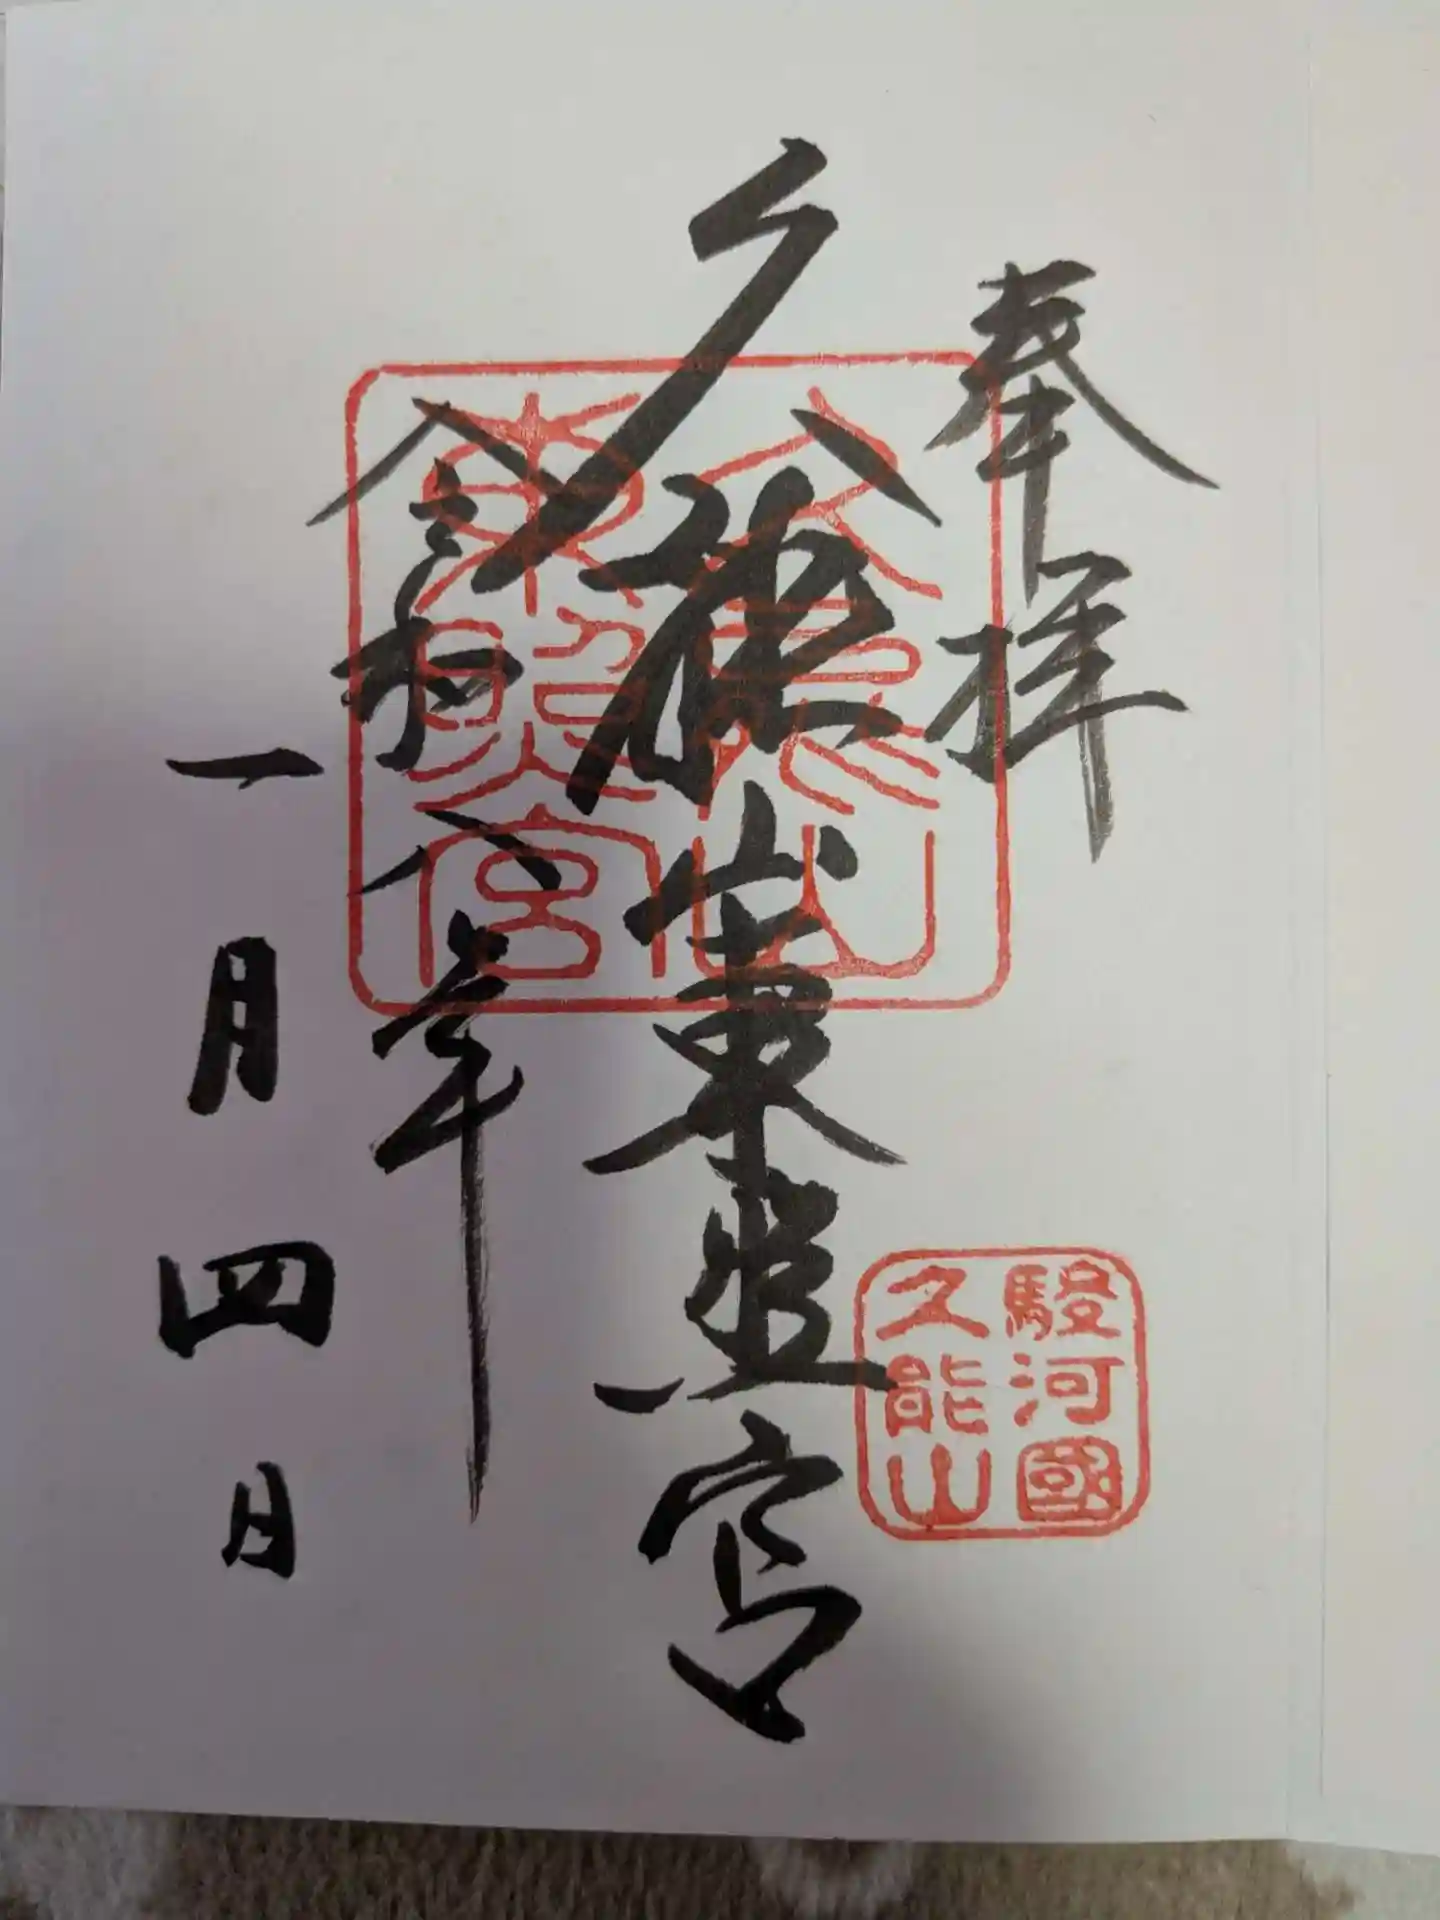 奉拝
久能山東照宮
令和八年
一月四日
久能山
東照宮
駿河國
久能山